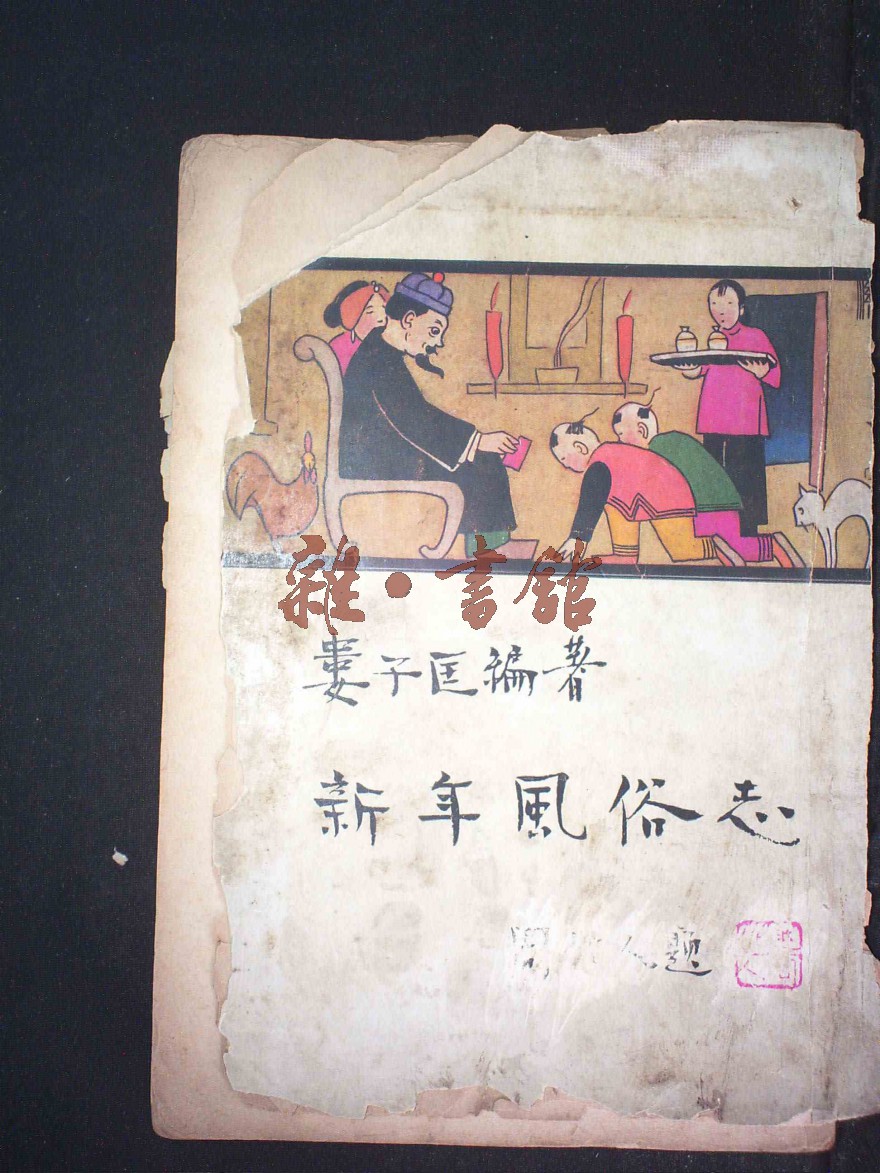 雜·書館
婁子匡編著
新年風俗志
周作人題